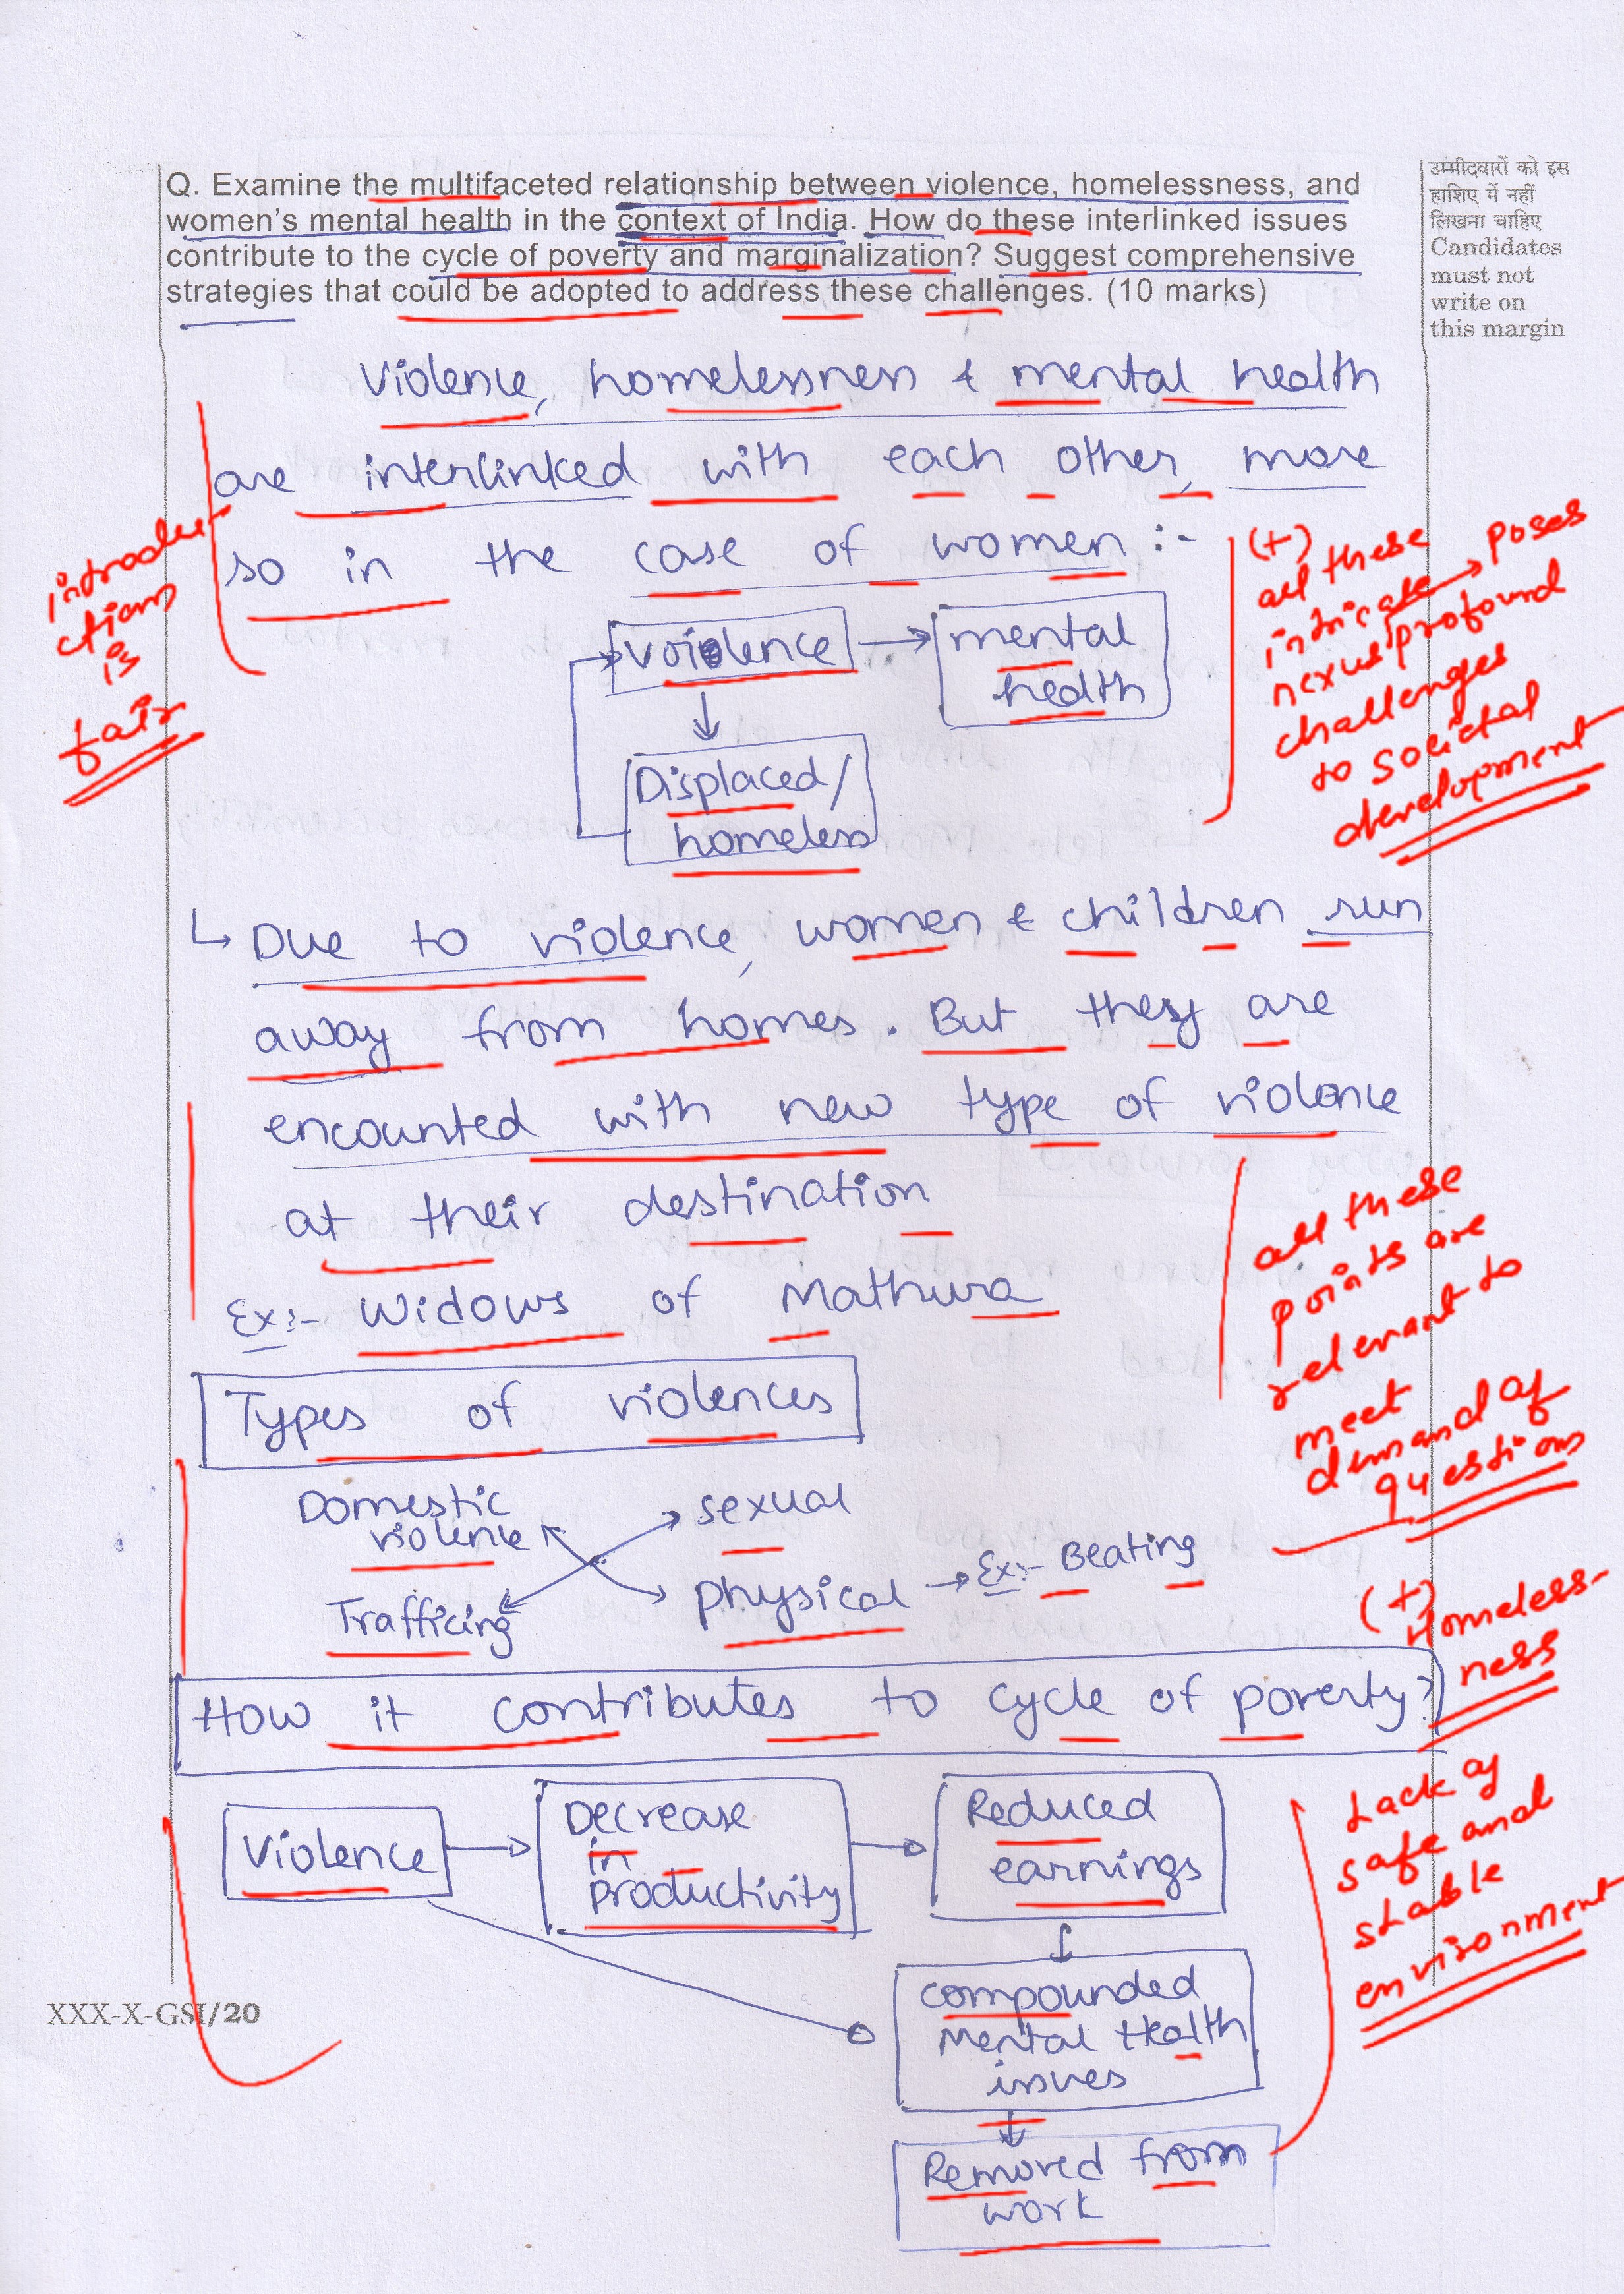 Q. Examine the multifaceted relationship between violence, homelessness, and
women's mental health in the context of India. How do these interlinked issues
contribute to the cycle of poverty and marginalization? Suggest comprehensive
strategies that could be adopted to address these challenges. (10 marks)
उम्मीदवारों को इस
हाशिए में नहीं
लिखना चाहिए
Candidates
must not
write on
this margin
Violence, homelessness & mental health
are interlinked with each other, more
so in the case of women :-
introdu
ction
is
fair
Voilence
mental
health
Displaced/
homeless
(+)
all these
intricate
nexus poses
profound
challenges
to societal
development
↳ Due to violence, women & children run
away from homes. But they are
encounted with new type of violence
at their destination
Ex:- Widows of Mathura
all these
points are
relevant to
meet
demand of
question
Types of violences
Domestic
violence
sexual
Trafficing
Physical → Ex:- Beating
(+)
Homeless-
ness
How it contributes to cycle of poverty?
Violence
Decrease
in
productivity
Reduced
earnings
Lack of
safe and
stable
environment
compounded
Mental Health
issues
Removed from
work
XXX-X-GSI/20